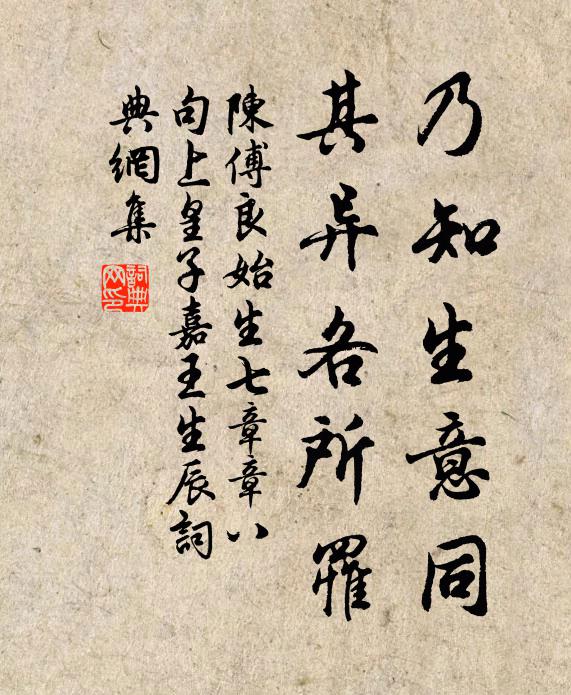 乃知生意同
其异各所罹
陳傅良始生七章章八
句上皇子嘉王生辰詞
典網集
詞典網印